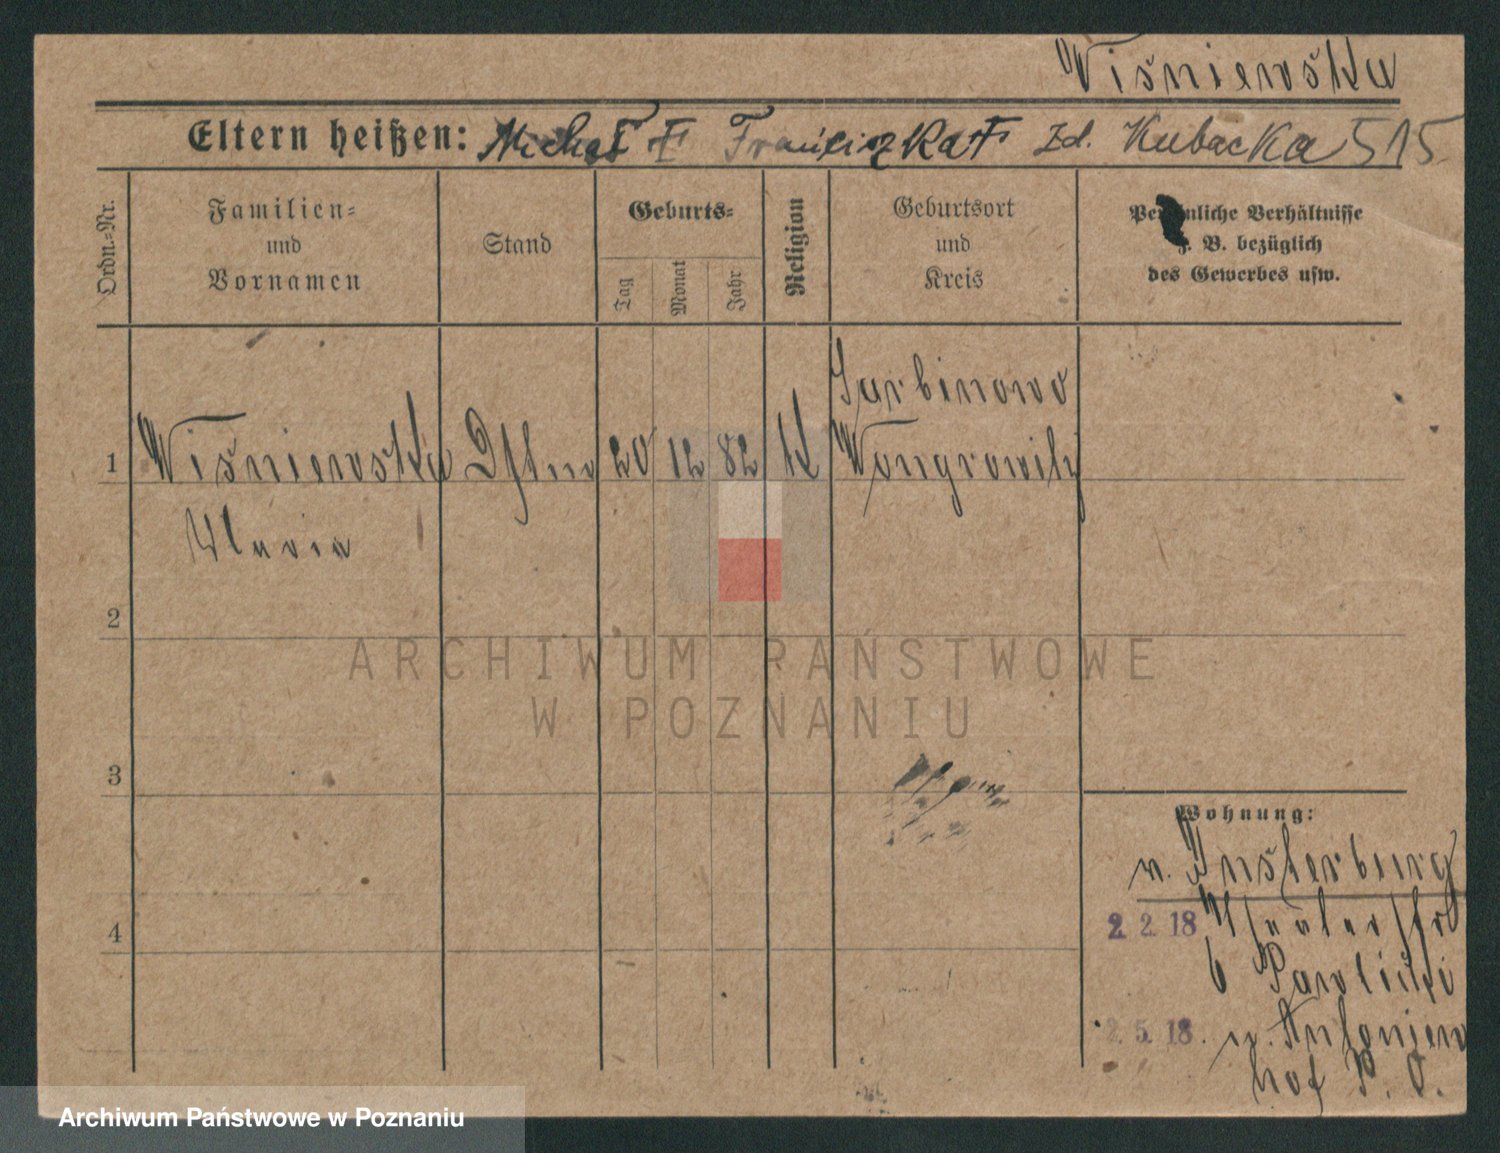 Wiśniewska
Eltern heißen: Michał F Franciszka F zd. Kubacka 515
Ordn.-Nr.
Familien-
und
Vornamen
Stand
Geburts-
Tag
Monat
Jahr
Religion
Geburtsort
und
Kreis
Persönliche Verhältnisse
z. B. bezüglich
des Gewerbes usw.
Sarbinowo
1 Wiśniewska 20 12 82 K Wongrowitz
Maria
2
ARCHIWUM PAŃSTWOWE
W POZNANIU
3
Wohnung:
n. Insterburg
2. 2. 18
6 Pawlicki
2. 5. 18. n. Antonien
hof P. O.
4
Archiwum Państwowe w Poznaniu